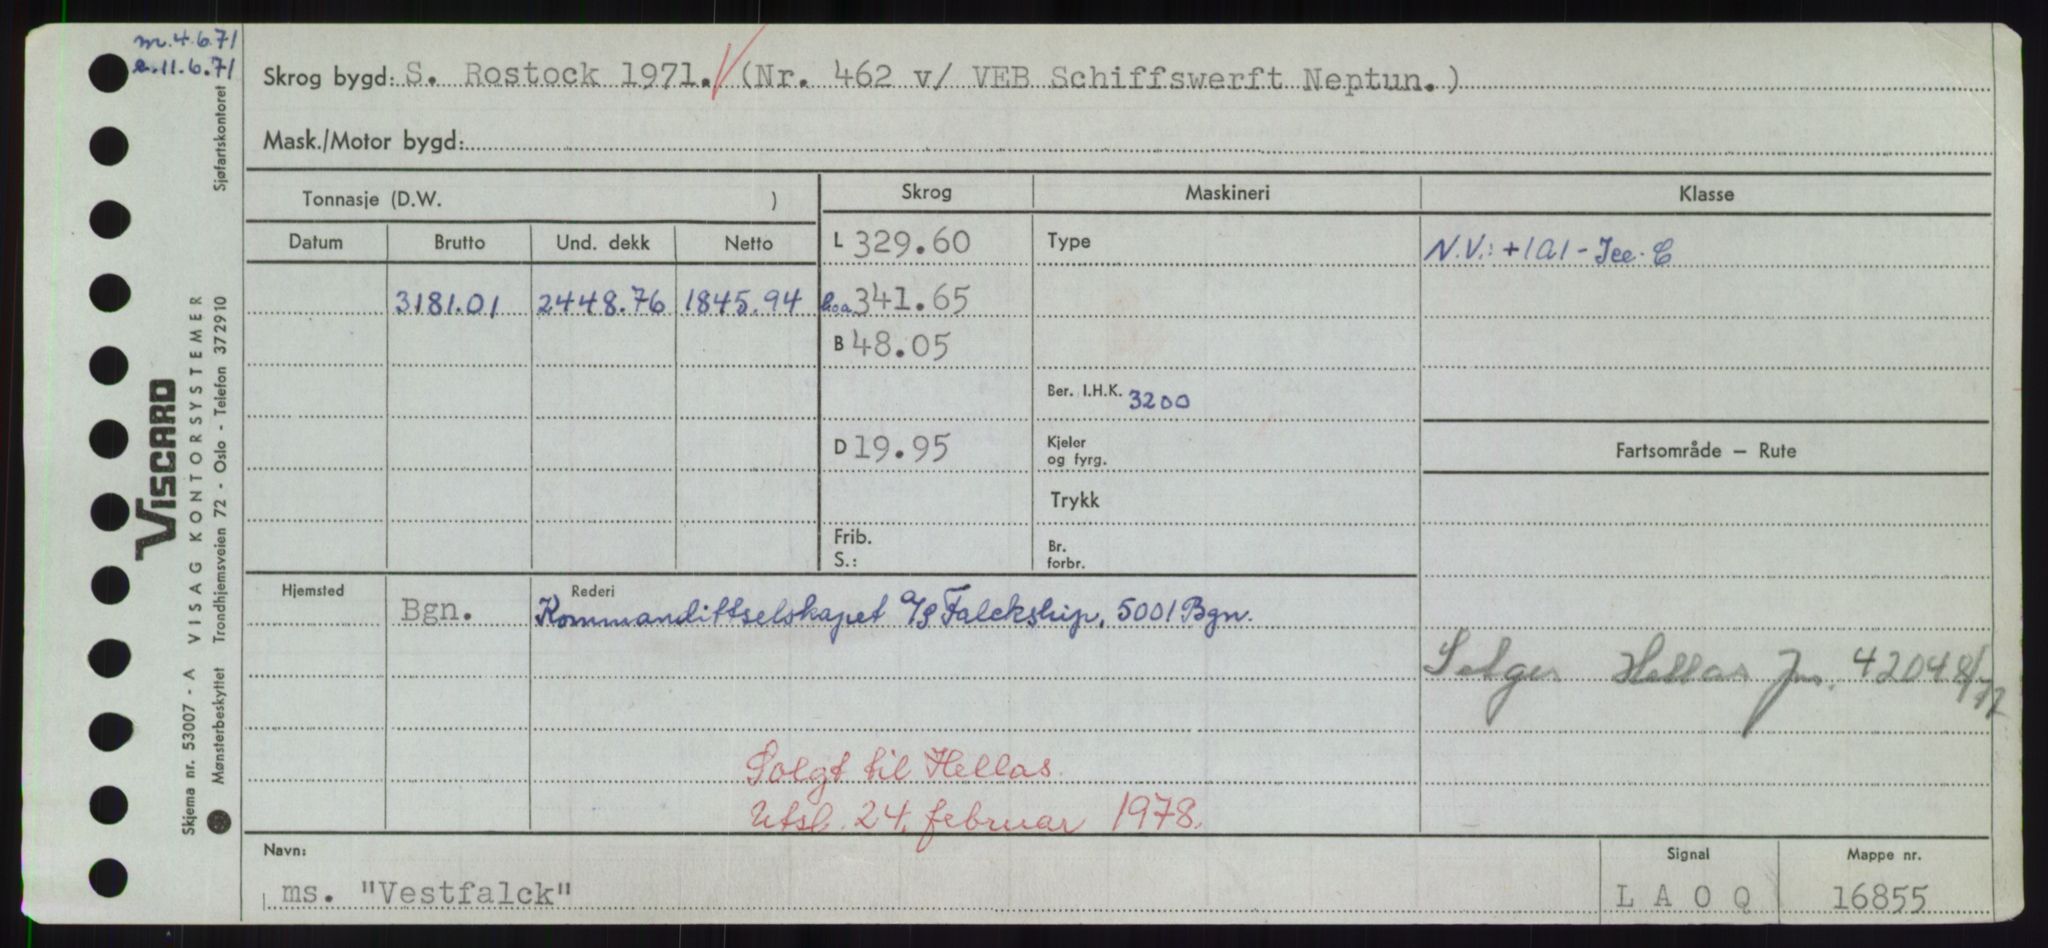 m. 4.6.71
e. 11.6.71
Skrog bygd: S. Rostock 1971. (Nr. 462 v/ VEB Schiffswerft Neptun.)
Mask./Motor bygd:
Tonnasje (D.W. )
Skrog Maskineri Klasse
Datum Brutto Und. dekk Netto
L 329.60 Type N.V.: +1A1 - Ice. C
3181.01 2448.76 1845.94 loa 341.65
B 48.05
Ber. I.H.K. 3200
D 19.95 Kjeler og fyrg.
Fartsområde — Rute
Trykk
Frib. S.:
Br. forbr.
Hjemsted Bgn. Rederi Kommandittselskapet A/S Falckship, 5001 Bgn.
Selges Hellas Jnr. 42048/77
Solgt til Hellas
Utsl. 24. februar 1978.
Navn: ms. "Vestfalck"
Signal LAOQ
Mappe nr. 16855
Sjøfartskontoret
VISCARD
VISAG KONTORSYSTEMER
Skjema nr. 53007 - A
Mønsterbeskyttet Trondhjemsveien 72 - Oslo - Telefon 372910